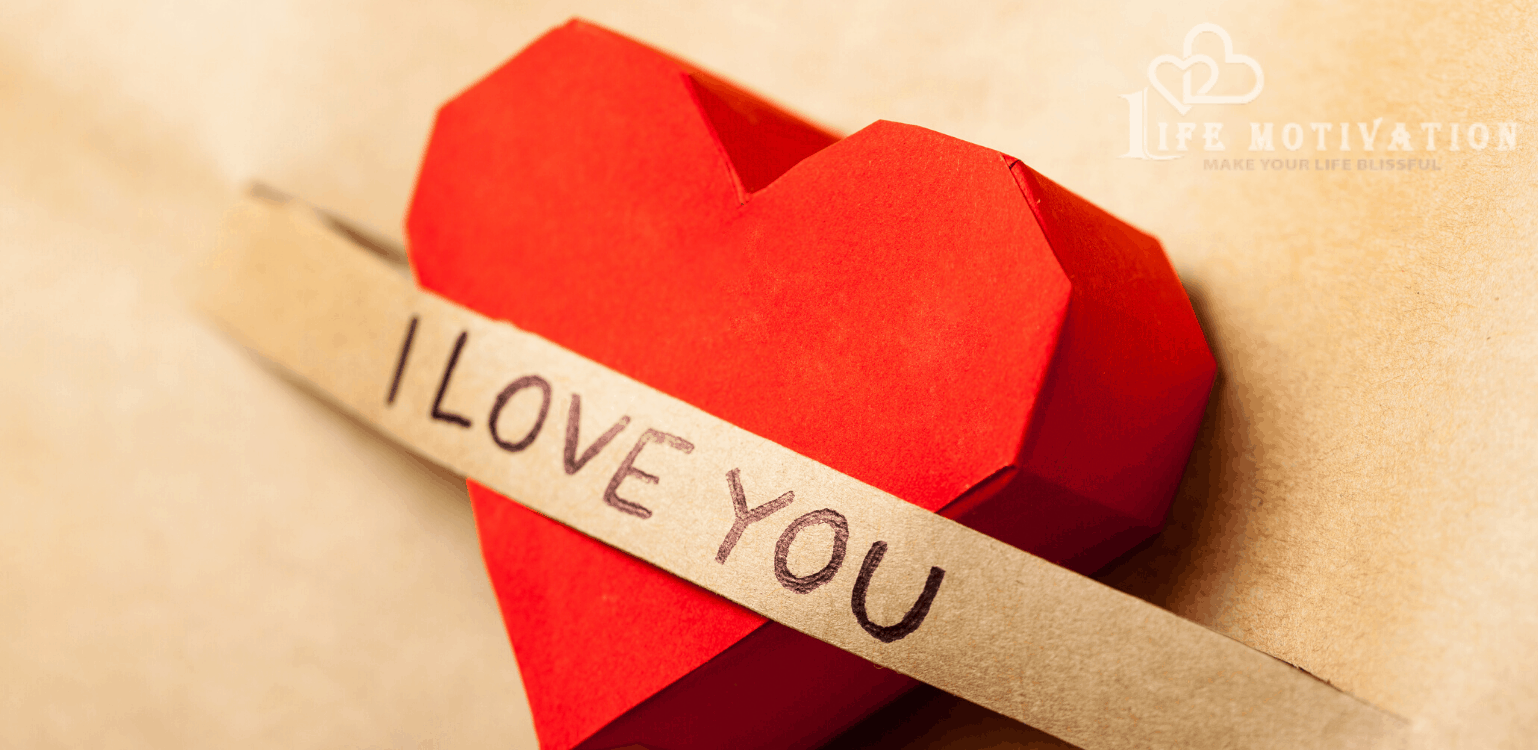 LIFE MOTIVATION
MAKE YOUR LIFE BLISSFUL
I LOVE YOU